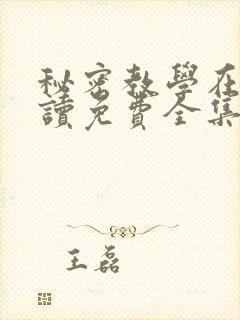 秘密教學在
讀免費全集
王磊